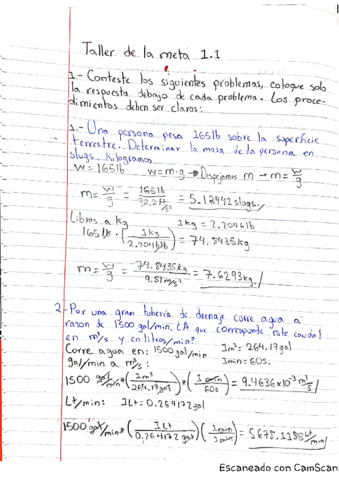 Taller de la meta 1.1
1.- Conteste los siguientes problemas, coloque solo
la respuesta debajo de cada problema. Los proce-
dimientos deben ser claros:
1.- Una persona pesa 165lb sobre la superficie
terrestre. Determinar la masa de la persona en
slugs. Kilogramos.
W = 165lb W = m·g → Despejamos m → m = w/g
m = w/g = 165lb/32.2ft/s² = 5.12442 slugs.
Libras a kg 1kg = 2.2046lb
165lb·(1kg/2.2046lb) = 74.8435kg
m = w/g = 74.8435kg/9.81m/s² = 7.6293kg.
2.- Por una gran tubería de drenaje corre agua a
razon de 1500 gal/min. ¿A que corresponde este caudal
en m³/s y en litros/min?
Corre agua en: 1500gal/min 1m³ = 264.17gal
gal/min a m³/s: 1min = 60s.
1500 gal/min*(1m³/264.17gal)*(1min/60s) = 9.4636x10⁻³ m³/s
Lt/min: 1Lt = 0.264172gal
1500gal/min*(1Lt/0,264172gal)(1min/1min) = 5678.1188 Lt/min
Escaneado con CamScan